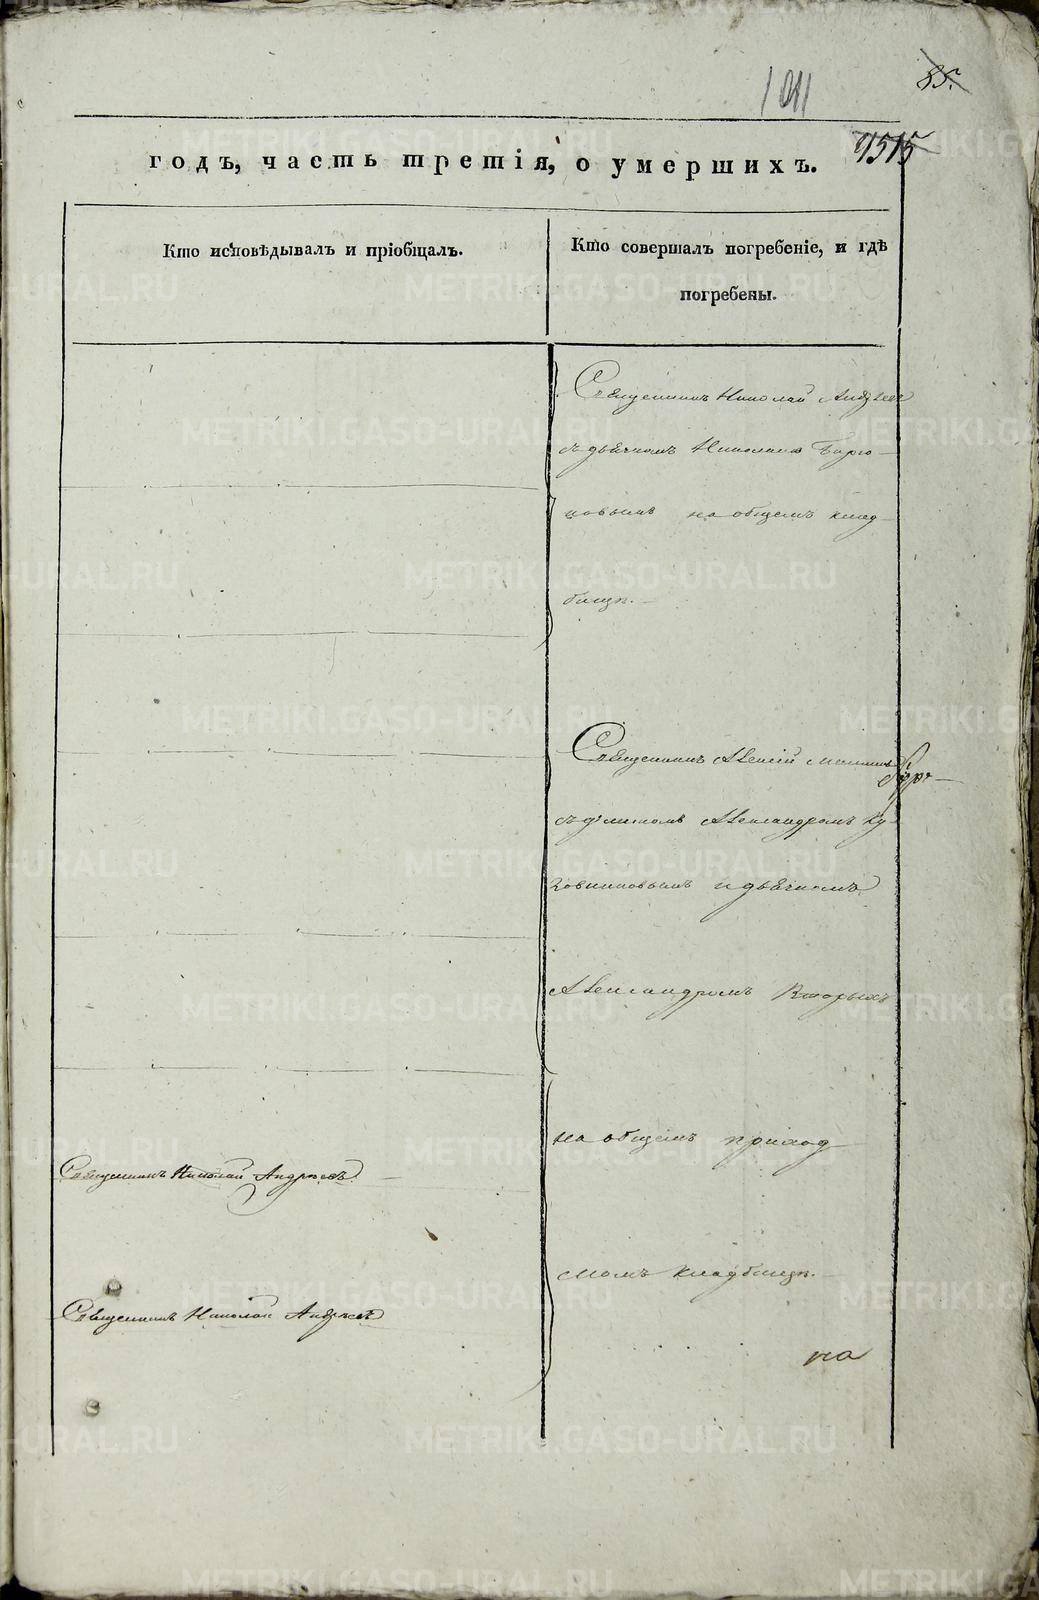 85.
1011
9515
годъ, часть третія, о умершихъ.
Кто исповѣдывалъ и пріобщалъ.
Кто совершалъ погребеніе, и гдѣ
погребены.
Священникъ Николай Андреевъ
съ дьячкомъ Николаемъ
на общемъ клад
бищѣ.
Священникъ Алексій
съ Александромъ Ку
зовниковымъ и дьячкомъ
Александромъ Вторыхъ
на общемъ приход
Священникъ Николай Андреевъ.
скомъ кладбищѣ.
Священникъ Николай Андреевъ
на
METRIKI.GASO-URAL.RU